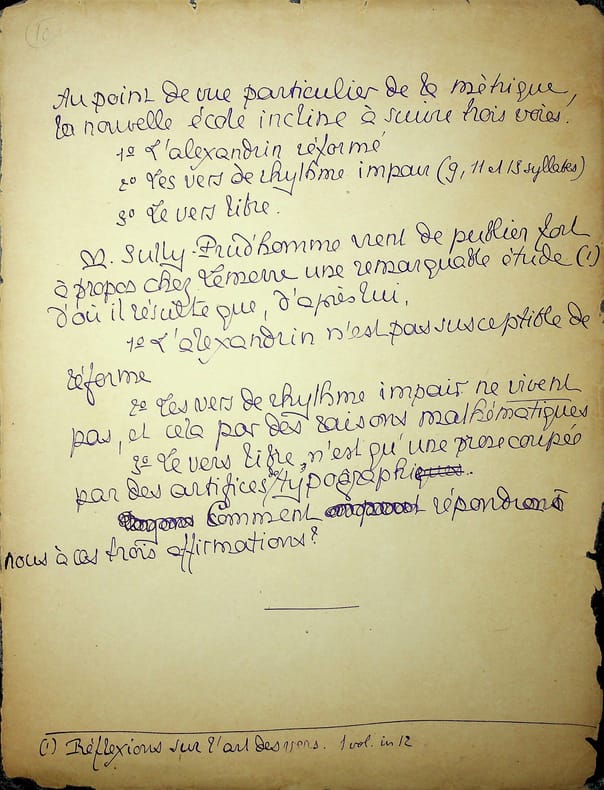 Au point de vue particulier de la métrique,
la nouvelle école incline à suivre trois voies.
1º L'alexandrin réformé
2º Les vers de rhythme impair (9, 11 et 13 syllabes)
3º Le vers libre.
M. Sully-Prudhomme vient de publier fort
à propos chez Lemerre une remarquable étude (1)
d'où il résulte que, d'après lui,
1º L'alexandrin n'est pas susceptible de
réforme
2º Les vers de rhythme impair ne vivent
pas, et cela par des raisons mathématiques
3º Le vers libre, n'est qu'une prose coupée
par des artifices typographiques.
Comment répondrons
nous à ces trois affirmations?
(1) Réflexions sur l'art des vers. 1 vol. in 12